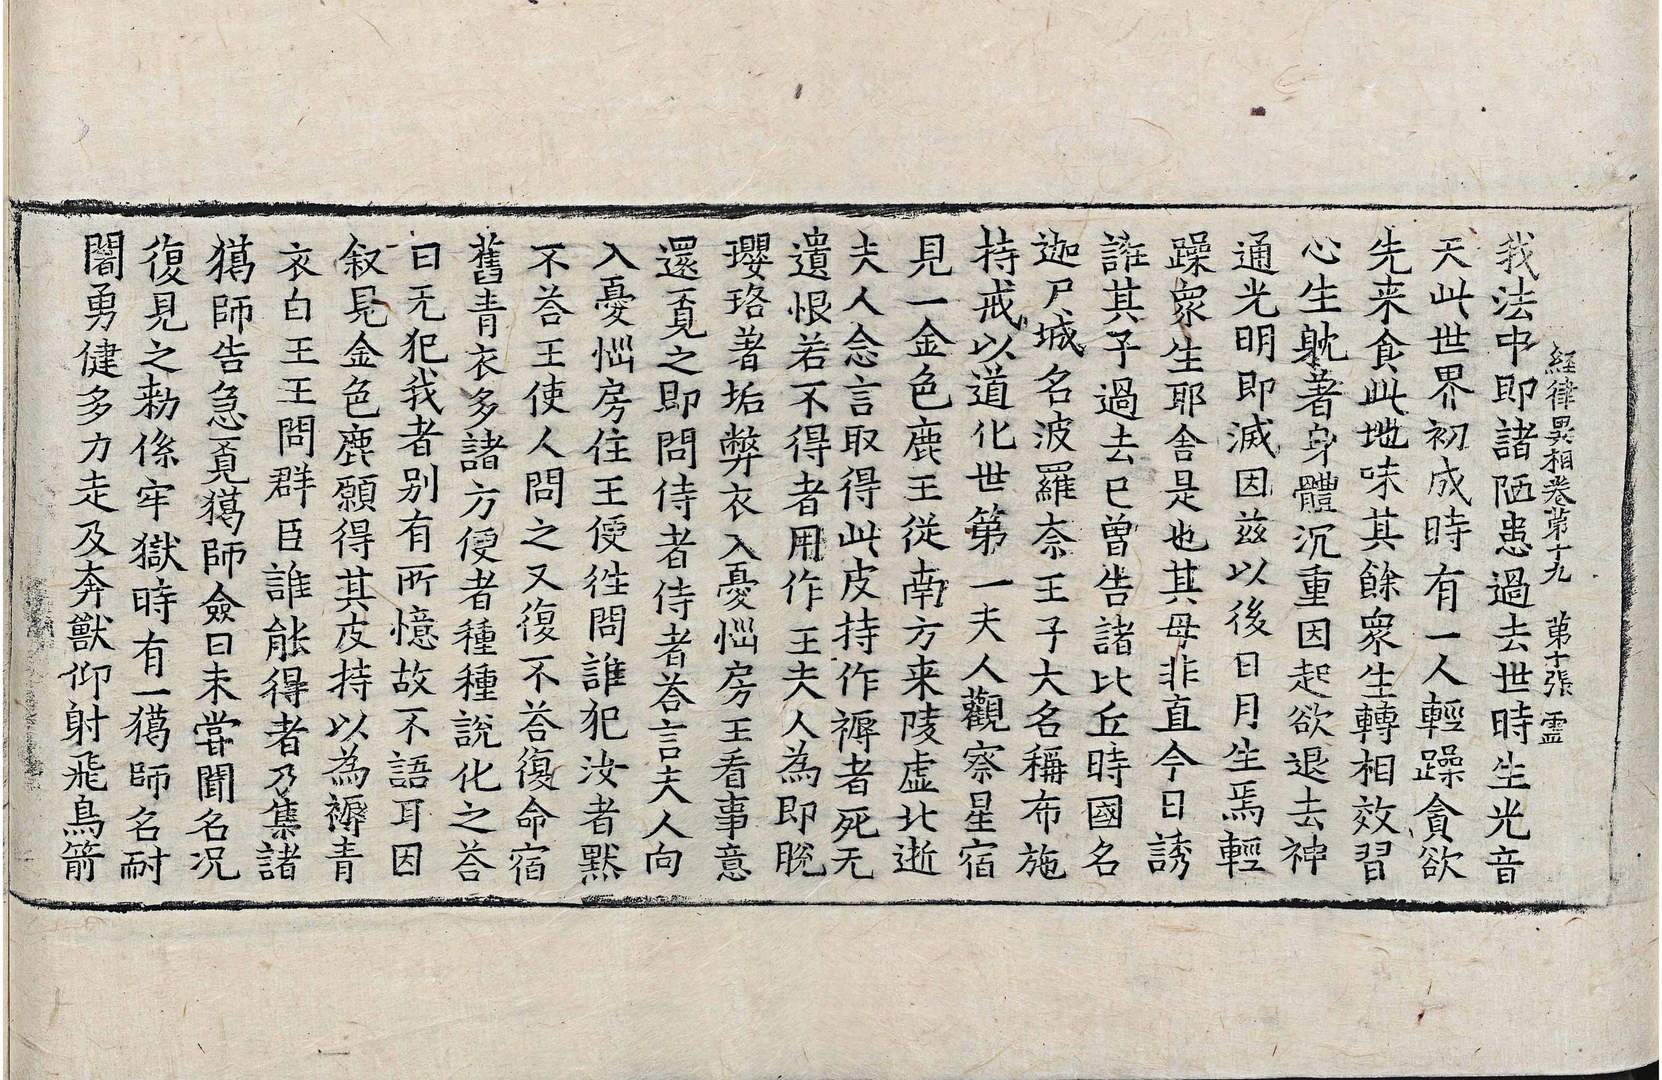 經律異相卷第十九 第十張 靈
我法中即諸陋患過去世時生光音
天此世界初成時有一人輕躁貪欲
先来食此地味其餘衆生轉相效習
心生躭著身體沉重因起欲退去神
通光明即滅因兹以後日月生焉輕
躁衆生耶舍是也其母非直今日誘
誑其子過去已曾告諸比丘時國名
迦尸城名波羅奈王子大名稱布施
持戒以道化世第一夫人觀察星宿
見一金色鹿王從南方来陵虛北逝
夫人念言取得此皮持作褥者死无
遺恨若不得者用作王夫人為即脫
瓔珞著垢弊衣入憂惱房王看事意
還覔之即問侍者侍者荅言夫人向
入憂惱房住王便徃問誰犯汝者黙
不荅王使人問之又復不荅復命宿
舊青衣多諸方便者種種說化之荅
曰无犯我者别有所憶故不語耳因
叙見金色鹿願得其皮持以為褥青
衣白王王問群臣誰能得者乃集諸
獦師告急覔獦師僉曰未甞聞名况
復見之勑係牢獄時有一獦師名耐
闍勇健多力走及奔獸仰射飛鳥箭